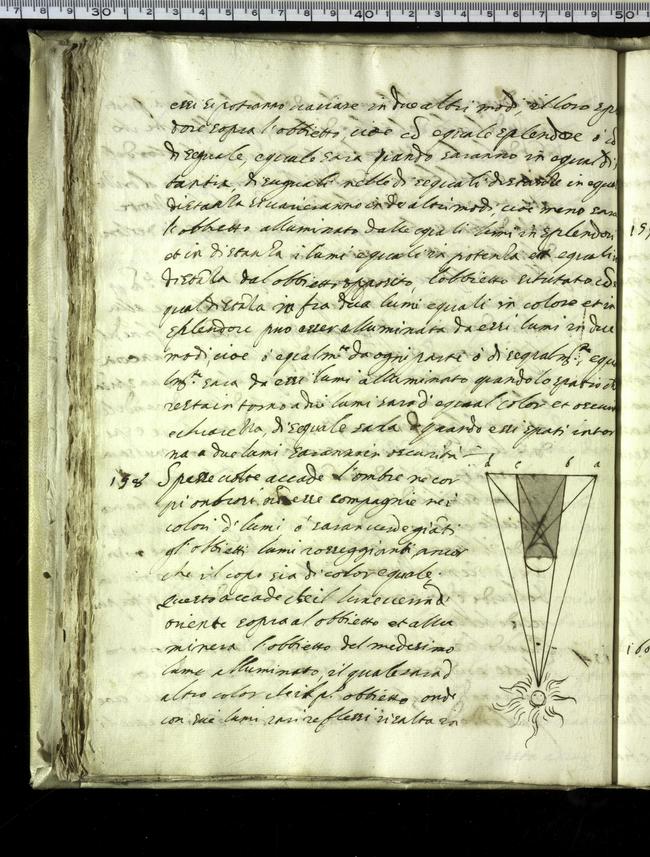 30 40 50
essi si potranno variare in due altri modi, il loro sple
dore sopra l'obbietto, cioè cō equale splendore ò cō
disequale, equale sara quando saranno in equal dis
tantia, disuguali nelle disequali
distanza si varieranno in due altri modi, cioe
l'obbietto alluminato dalli equali lumi in splendore
et in distanza i lumi equali in potenza et equali in
distāza dal obbietto opposito, l'obbietto situtato cō e
qual distāza in fra dua lumi equali in colore et in
splendore puo esser alluminata da essi lumi in due
modi cioe ò equalmᵗᵉ da ogni parte ò disequalmᵗᵉ, equa
lmᵗᵉ sara da essi lumi alluminato quando lo spatio ch
resta intorno a dui lumi sara d'equal color et oscuri
e chiarezza, disequale sara quando essi spati intor
na a due lumi saranno in oscurita
158 Spesse volte accade l'ombre ne cor
pi onbrosi compagnie nei
colori di lumi ò saran verdegiāti
gl'obbietti lumi rosseggianti ancor
che il copo sia di color equale
questo accade che il lume verra d
oriente sopra al obbietto et allu
minera l'obbietto del medesimo
lume alluminato, il quale sara d
altro color che il pº obbietto, onde
con sue lumi rari reflessi risalta in
d c b a